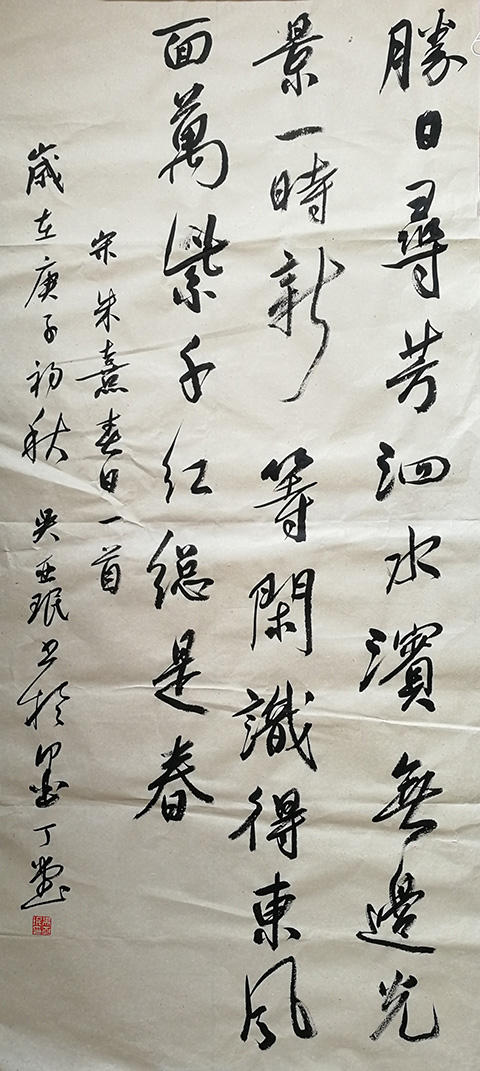 勝日尋芳泗水濱無邊光
景一時新等閑識得東風
面萬紫千紅總是春
宋朱熹春日一首
歲在庚子初秋吳亞珉書於墨丁堂